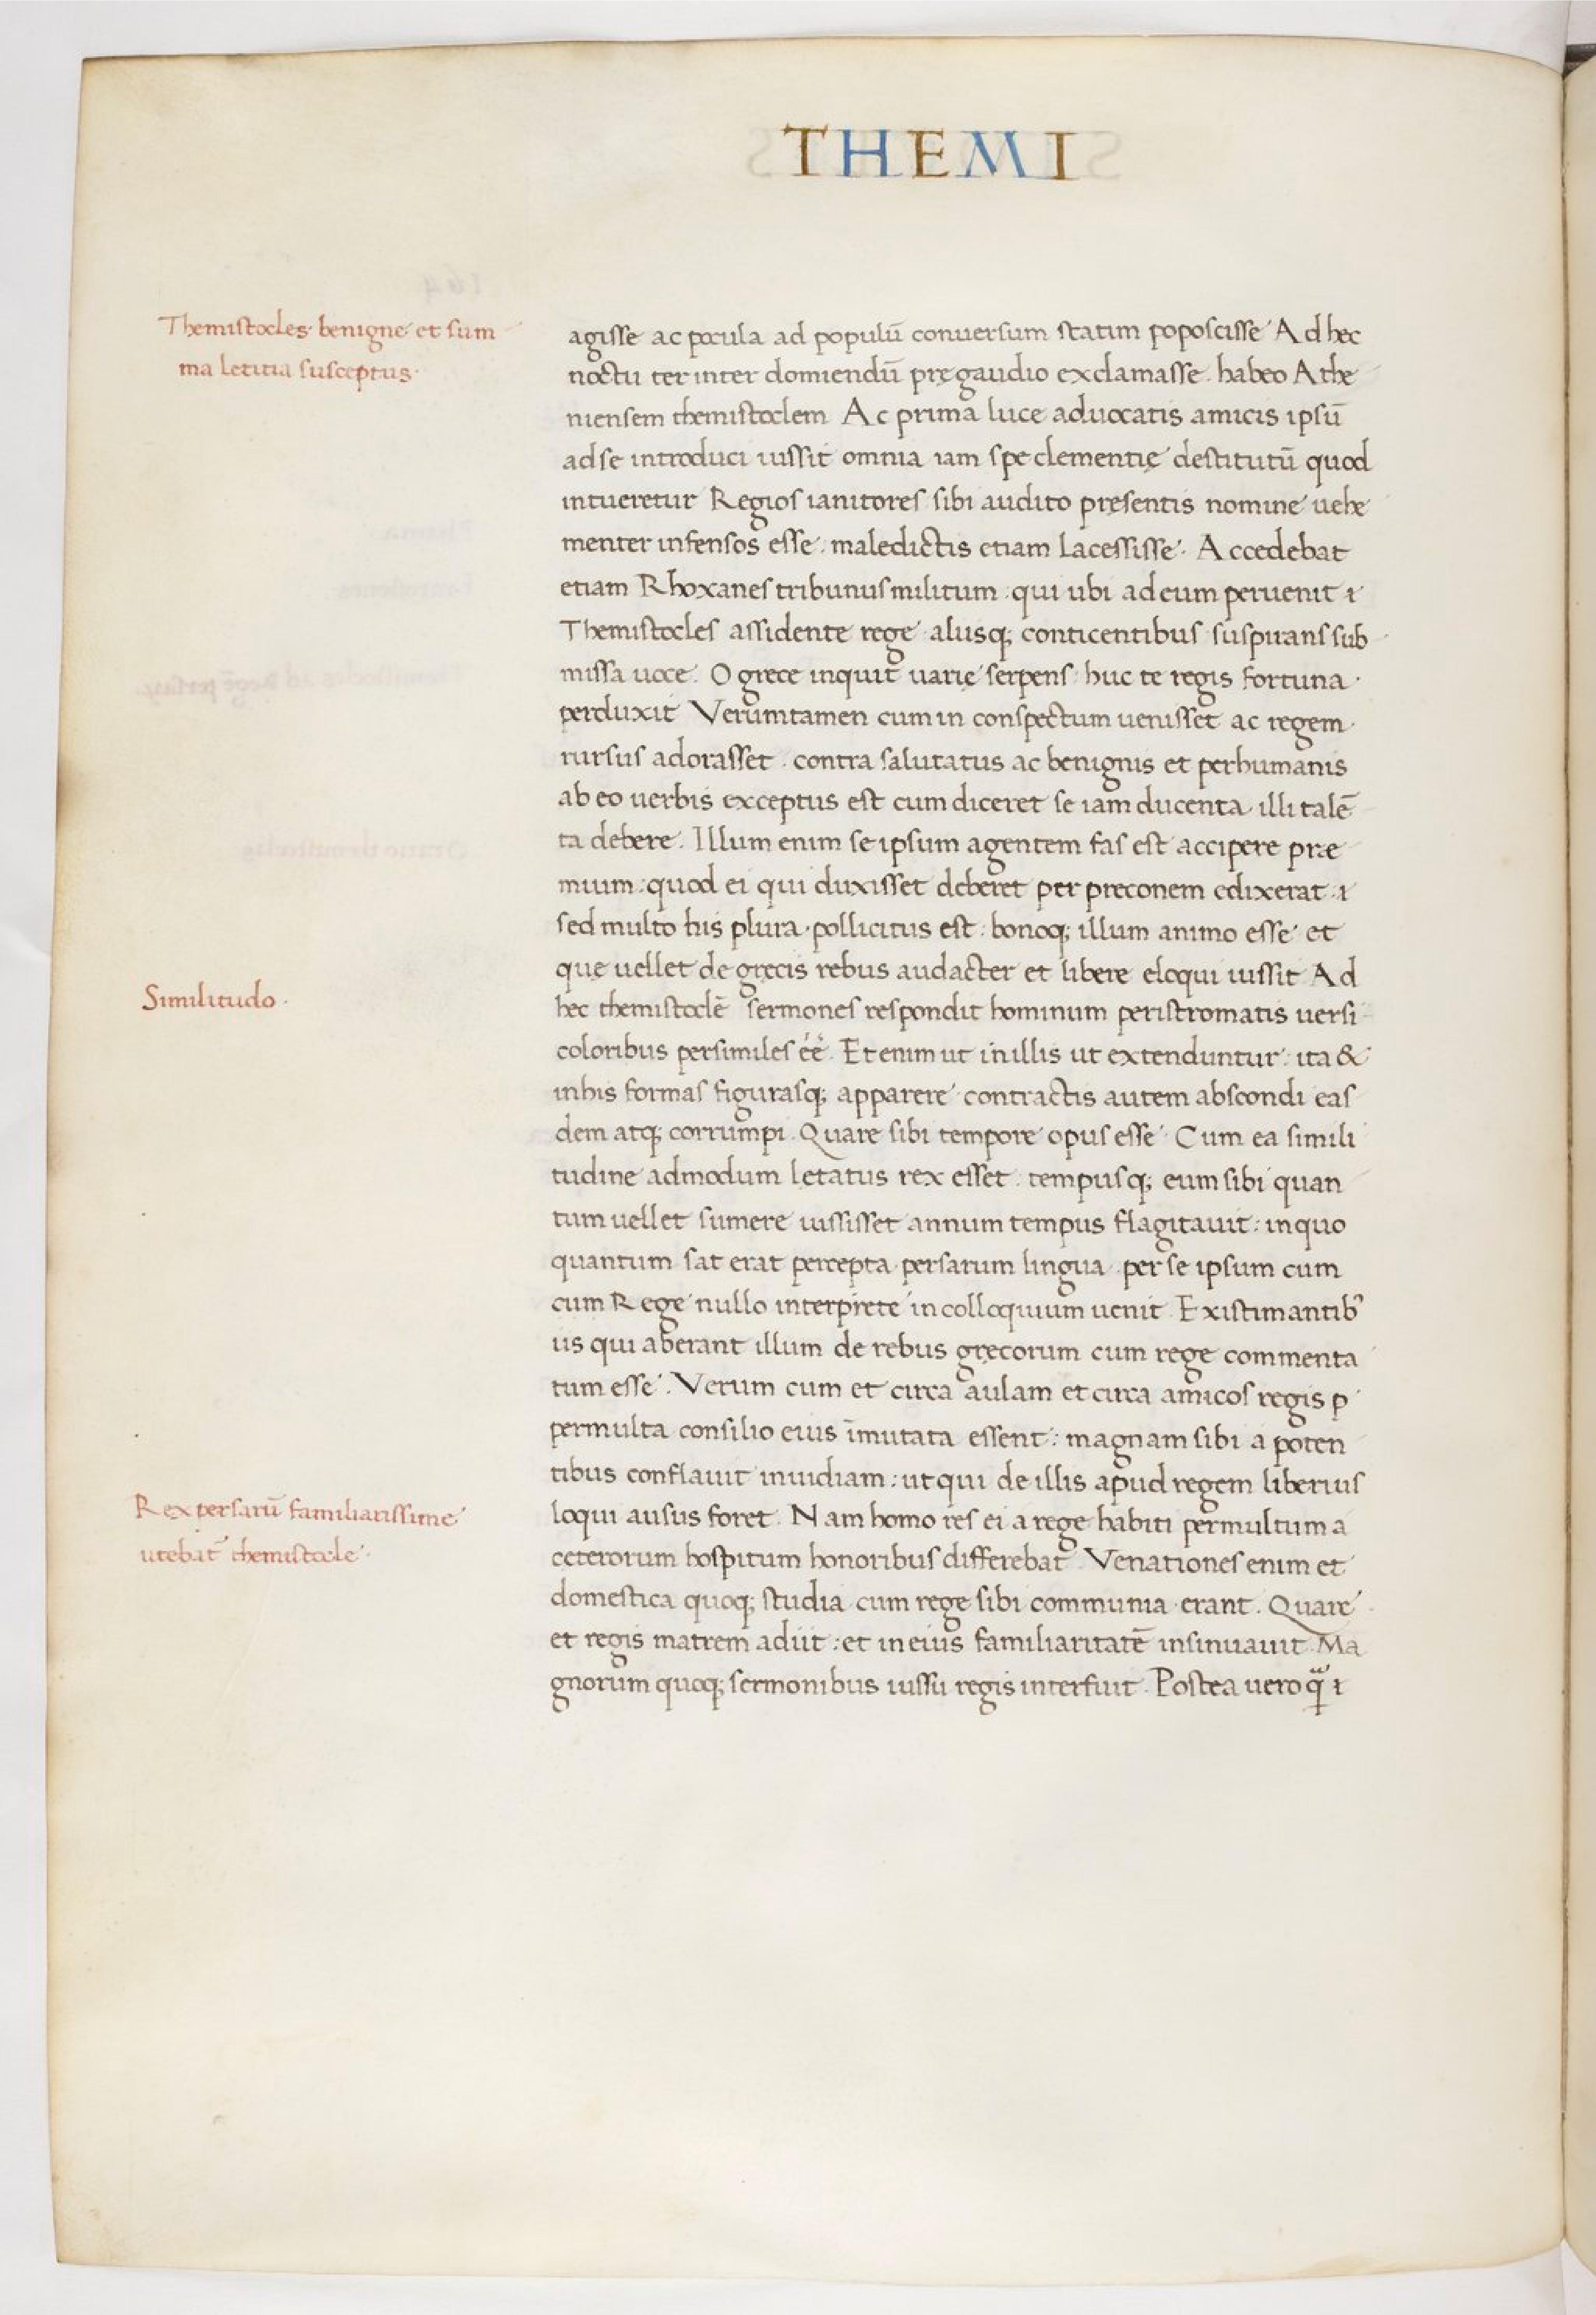 THEMI
Themistocles benigne et sum
ma letitia susceptus.
agisse ac pocula ad populū conuersum statim poposcisse Ad hec
noctu ter inter domiendū pręgaudio exclamasse. habeo Athe
niensem themistoclem Ac prima luce aduocatis amicis ipsū
ad se introduci iussit omnia iam spe clementię destitutū quod
intueretur Regios ianitores sibi audito pręsentis nomine uehe
menter infensos esse. maledictis etiam lacessisse. Accedebat
etiam Rhoxanes tribunus militum. qui ubi ad eum peruenit
Themistocles assidente rege aliisq; conticentibus suspirans sub
missa uoce. O grece inquit uarię serpens huc te regis fortuna
perduxit Verumtamen cum in conspectum uenisset ac regem
rursus adorasset. contra salutatus ac benignis et perhumanis
ab eo uerbis exceptus est cum diceret se iam ducenta illi talē
ta debere. Illum enim se ipsum agentem fas est accipere præ
mium: quod ei qui duxisset deberet per preconem edixerat.
sed multo his plura pollicitus est: bonoq; illum animo esse et
quę uellet de gręcis rebus audacter et libere eloqui iussit Ad
Similitudo.
hec themistoclē sermones respondit hominum peristromatis uersi
coloribus persimiles éé. Etenim ut in illis ut extenduntur: ita &
in his formas figurasq; apparere contractis autem abscondi eas
dem atq; corrumpi. Quare sibi tempore opus esse Cum ea simili
tudine admodum letatus rex esset. tempusq; eum sibi quan
tum uellet sumere iussisset annum tempus flagitauit: in quo
quantum sat erat percepta persarum lingua per se ipsum cum
cum Rege nullo interprete in colloquium uenit. Existimantib᾿
us qui aberant illum de rebus gręcorum cum rege commenta
tum esse. Verum cum et circa aulam et circa amicos regis p
permulta consilio eius īmutata essent: magnam sibi a poten
tibus conflauit inuidiam: ut qui de illis apud regem liberius
Rex persarū familiarissime
utebat̄ themistocle.
loqui ausus foret. Nam homo res ei a rege habiti permultum a
ceterorum hospitum honoribus differebat Venationes enim et
domestica quoq; studia cum rege sibi communia erant. Quare
et regis matrem adiit: et in eius familiaritatē insinuauit. Ma
gnorum quoq; sermonibus iussu regis interfuit. Postea uero